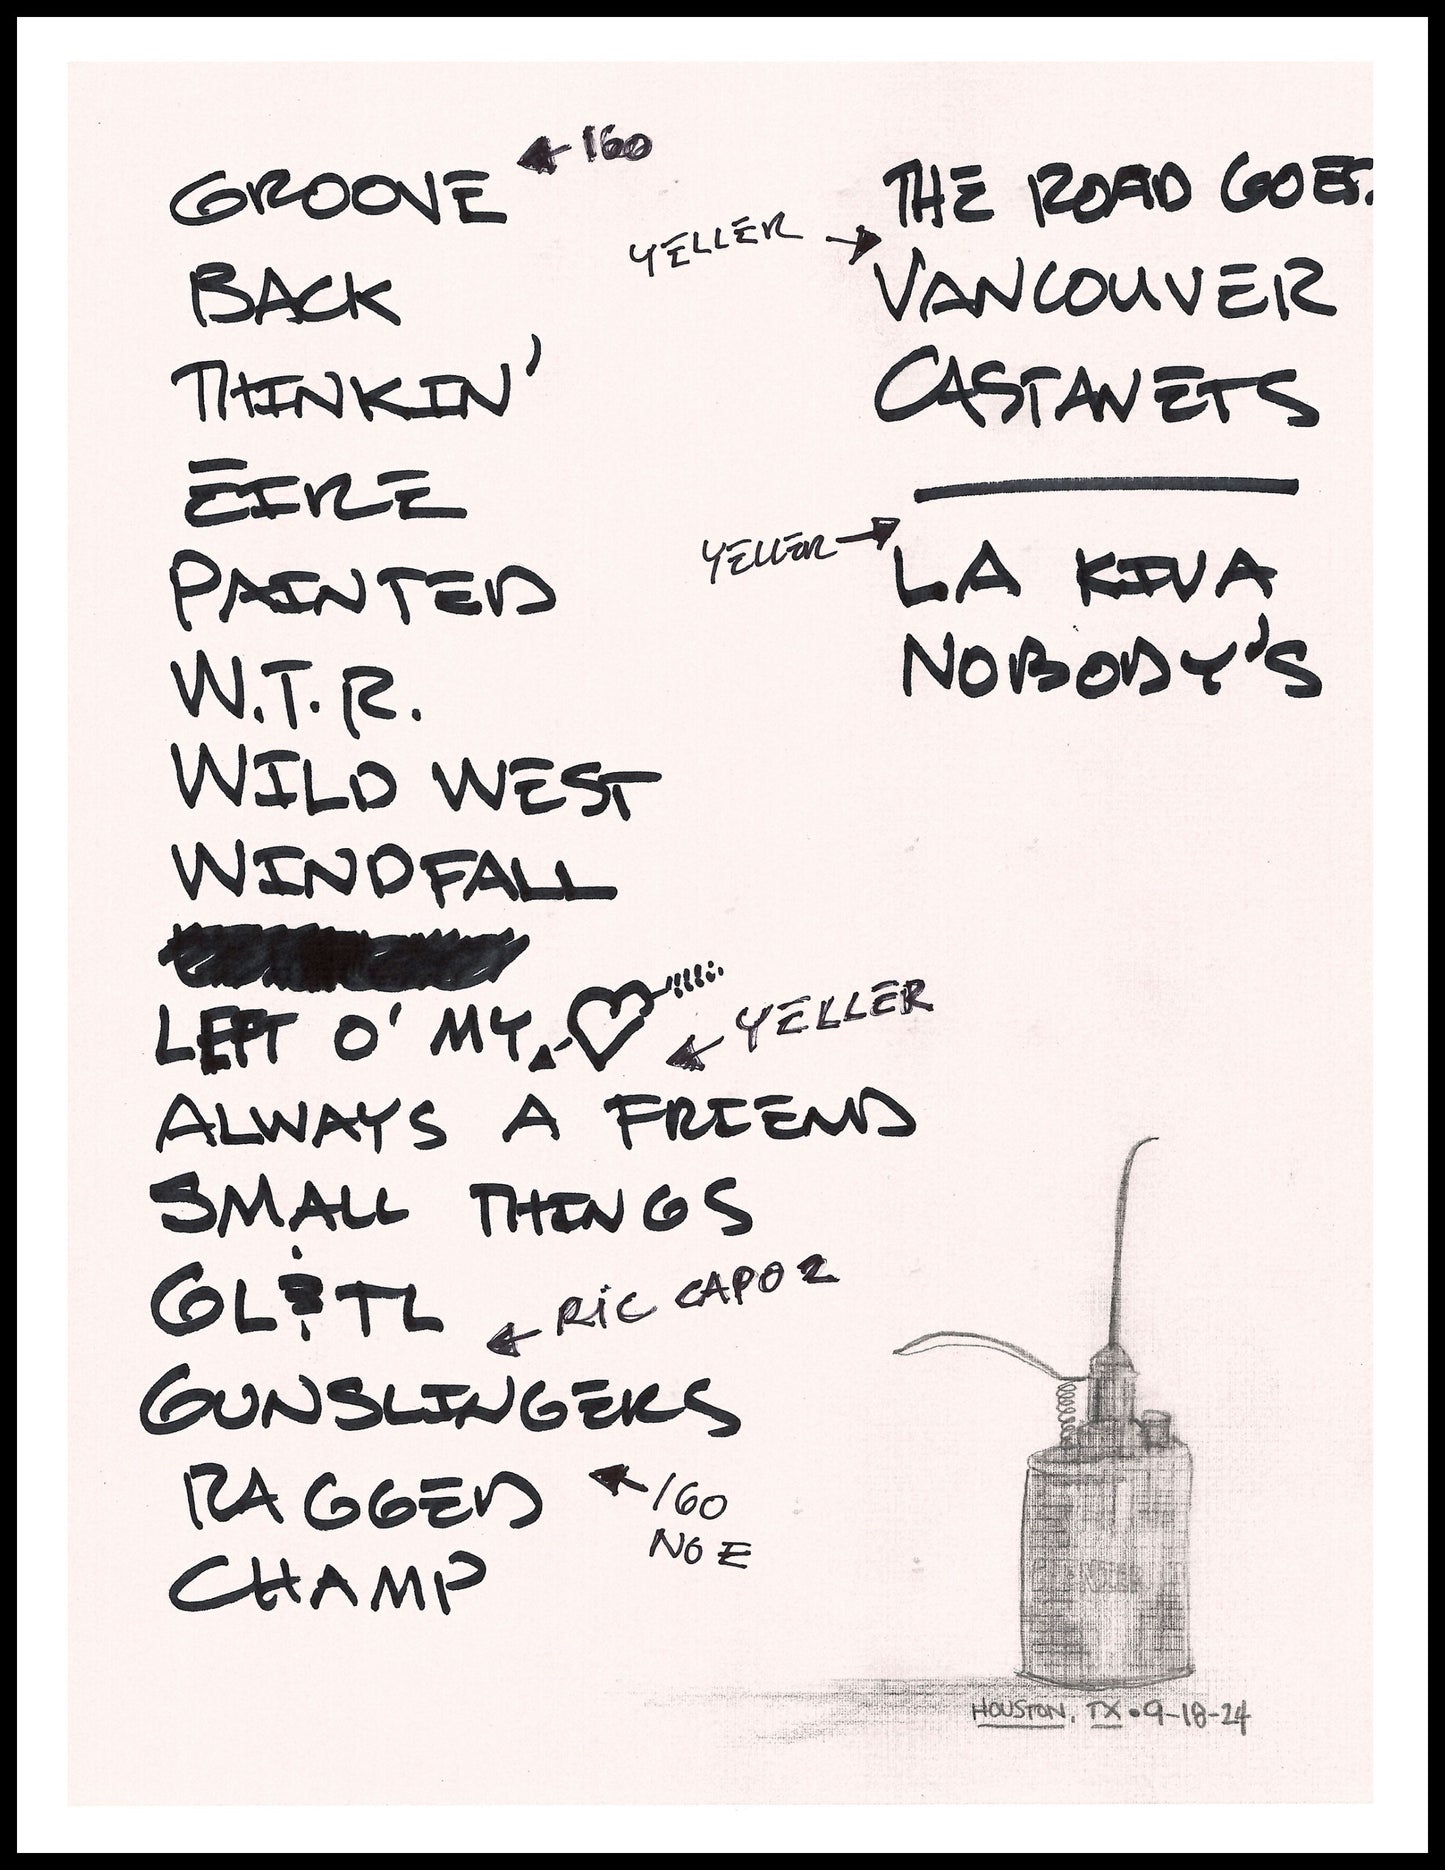 GROOVE ← 160
BACK
THINKIN'
EIRE
PAINTED
W.T.R.
WILD WEST
WINDFALL
LEFT O' MY
← YELLER
ALWAYS A FRIEND
SMALL THINGS
GL & TL
← RIC CAPO 2
GUNSLINGERS
RAGGED ← 160
NO E
CHAMP
THE ROAD GOES.
YELLER →
VANCOUVER
CASTANETS
YELLER →
LA KIVA
NOBODY'S
HOUSTON, TX • 9-18-24